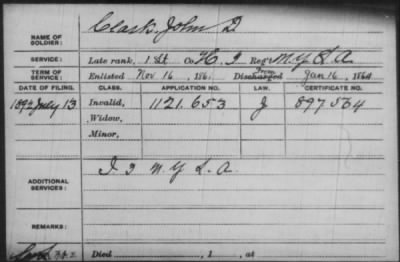 NAME OF SOLDIER: Clark, John D
SERVICE: Late rank, 1 Lt Co. H, 3 Reg't N.Y. L A
TERM OF SERVICE: Enlisted Nov 16, 1861 Discharged From Jan 16, 1864
DATE OF FILING. CLASS. APPLICATION NO. LAW. CERTIFICATE NO.
1892 July 13 Invalid, 1121.653 J 897564
Widow,
Minor,
ADDITIONAL SERVICES: I 3 N.Y. L. A.
REMARKS:
Died , 1 , at